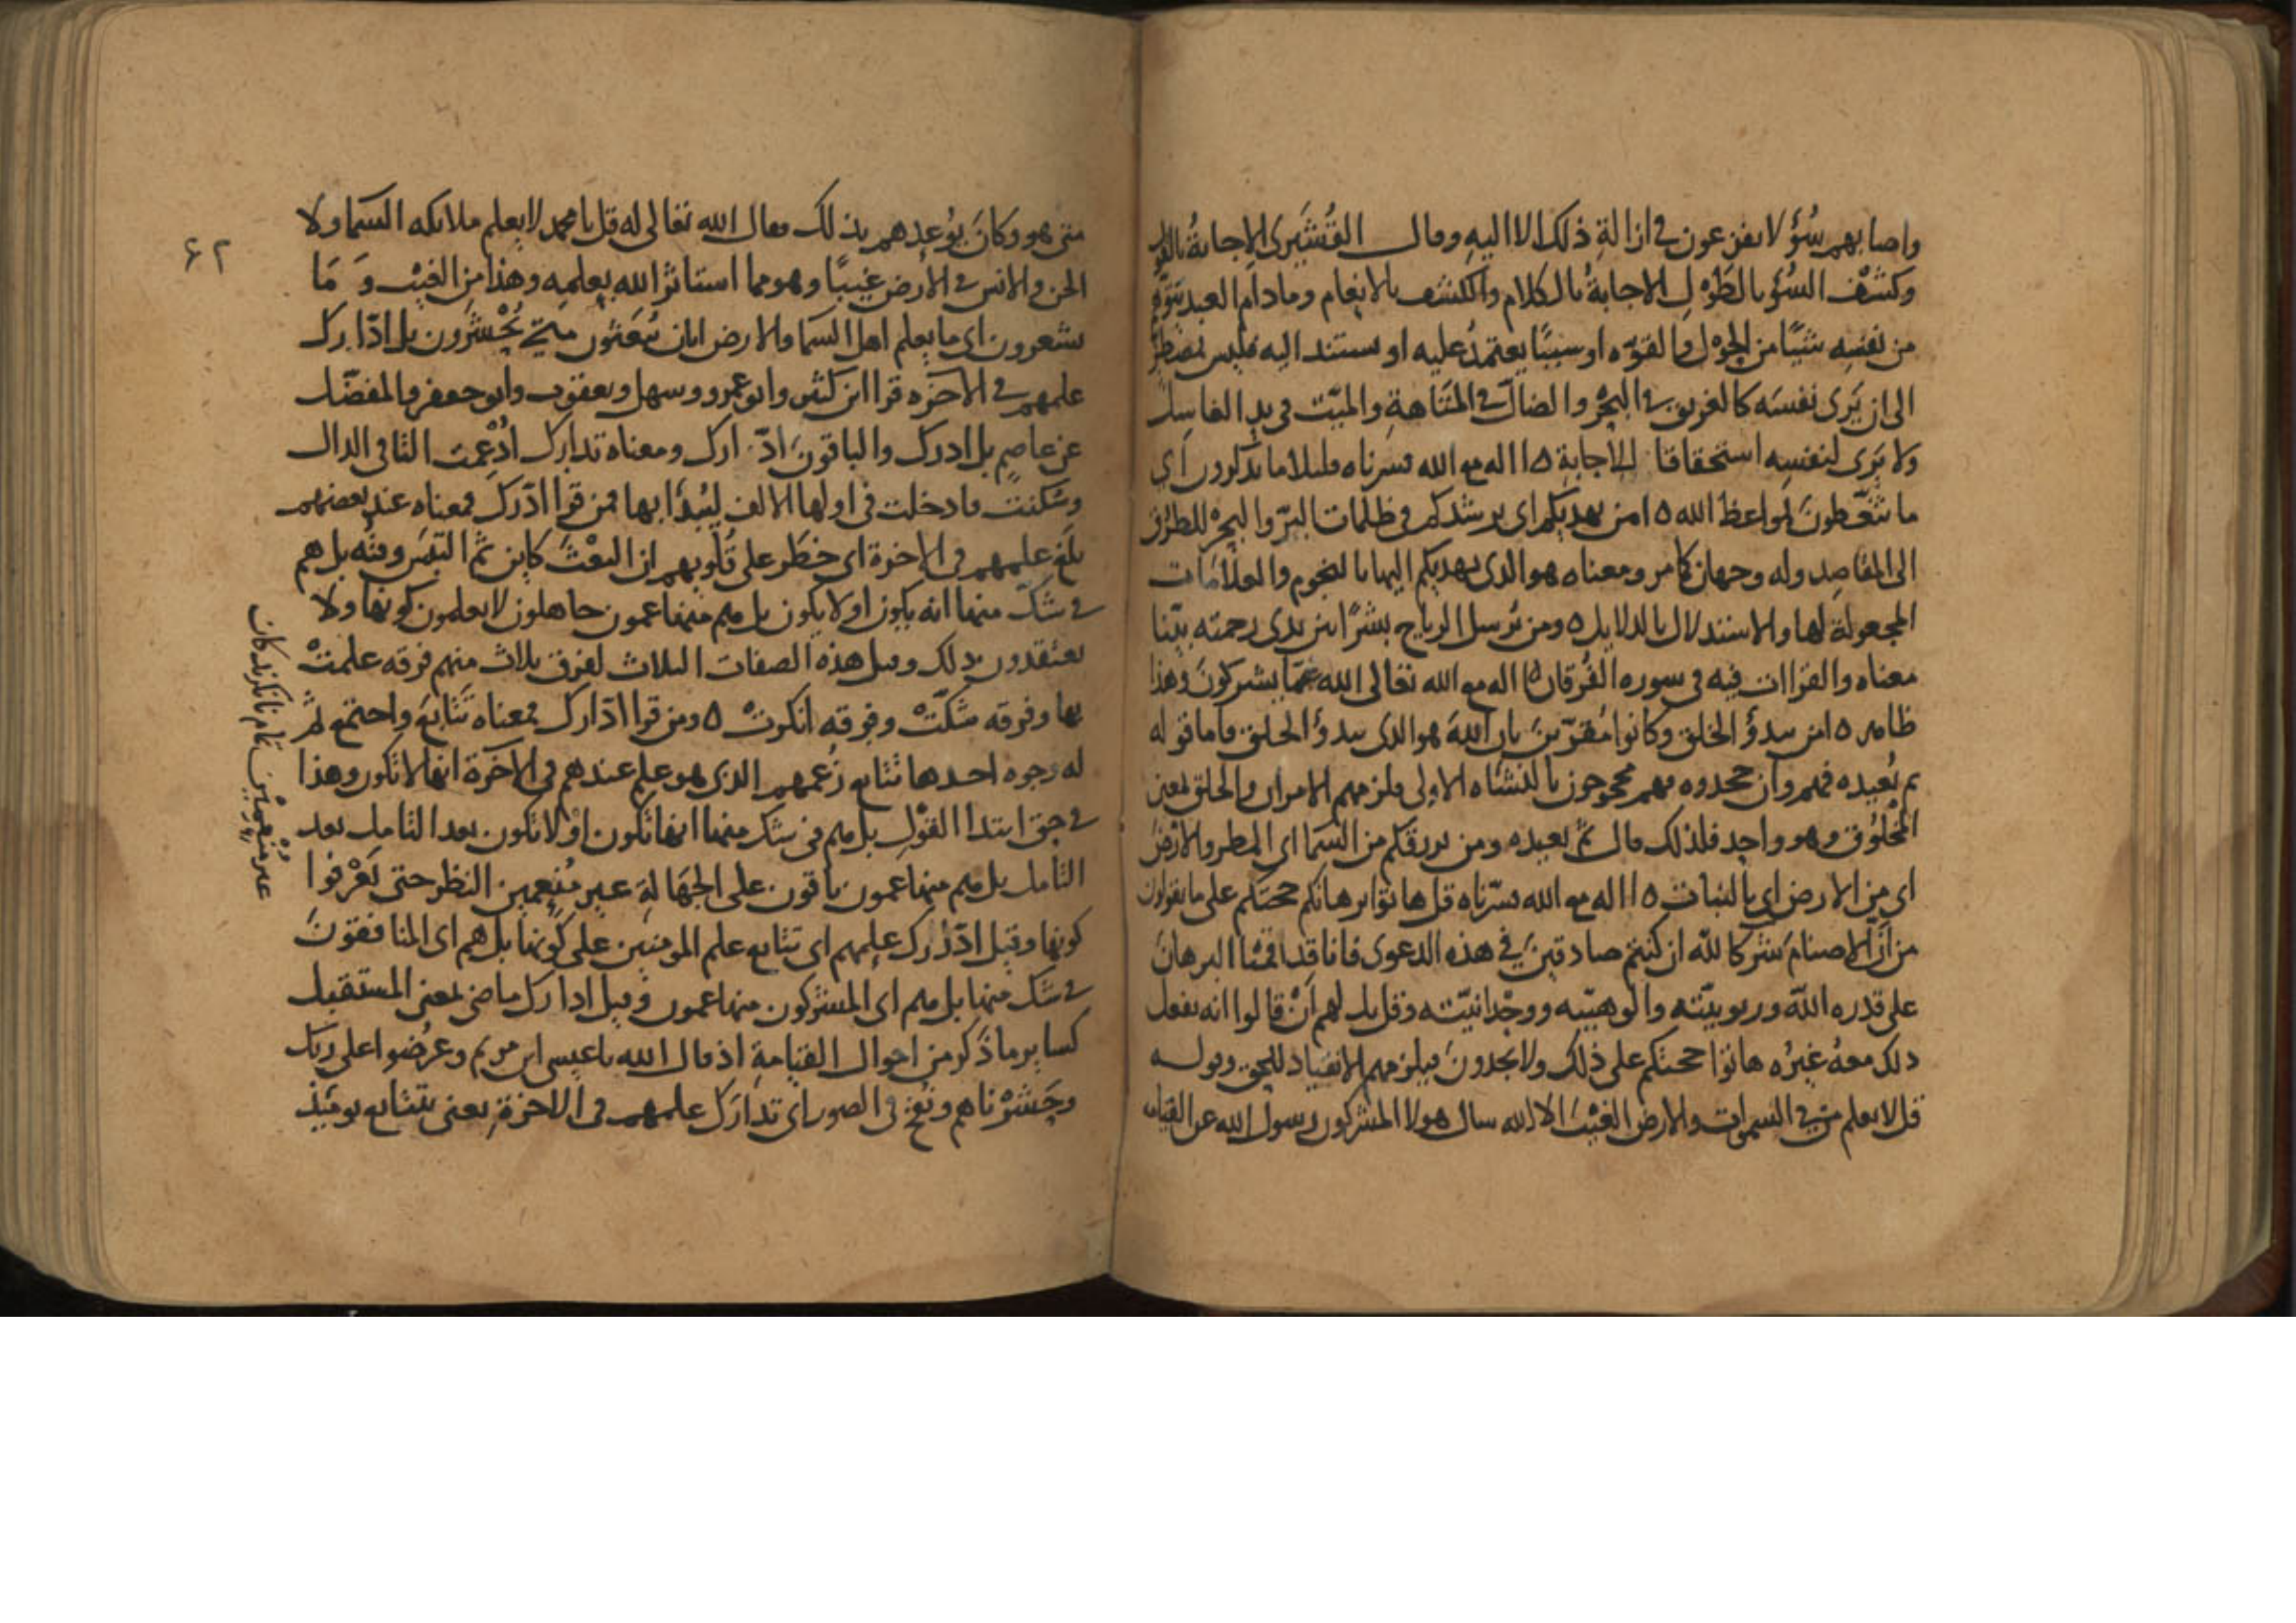 واصابهم سُؤ لا يفزعون في ازالةِ ذلك الا اليهِ وقال القُشَيرى الاجابةُ بالقول
وكشْف السُّؤ بالطَّوْلِ الاجابةُ بالكلام والكشف بالانعام وما دام العبد يتوهم
من نفسِه شيًا من الحَوْل والقوّه او سببًا يعتمدُ عليه او يستند اليه فليس بمضطرٍّ
الى ان يَرى نفسَه كالغريق في البحْر والضالّ في المتَاهةِ والميّت في يدِ الغاسِل
ولا يَرى لنفسِه استحقاقا للاجابةِ ه االه مع الله فسرناه قليلا ما تذكرون اي
ما تتّعظونَ لمواعظ الله ه امن يهديكم اى يرشدكم في ظلمات البَرّ والبحرْ للطرُق
الى المقاصِد وله وجهان كما مر ومعناه هو الذى يهديكم اليها بالنجوم والعلامات
المجعولة لها والاستدلال بالدلايل ه ومن يُرسل الرياح بشرًا بين يدى رحمته بيّنا
معناه والقراات فيه في سوره الفُرقان ه االه مع الله تعالى الله عمّا يشركونَ وهذا
ظاهر ه امن يبدؤ الخلق وكانوا مُقرّينَ بان اللهَ هو الذى يبدؤ الخلق فاما قوله
ثم يُعيده فهم وان جحدوه فهم محجوجون بالنشاه الاولى فلزمهم الامران والخلق بمعنى
المخلُوق وهو واحِد فلذلك قال ثمّ يعيده ومن يرزقكم من السّما اى المطر والارضِ
اى مِن الارض اى بالنبات ه االه مع الله فسّرناه قل هاتوا برهانكم حجتكم على ما يقولون
من انّ الاصنامَ شركا للّه ان كنتم صادقينَ في هذه الدعوى فانا قد اقمْنا البرهان
على قدره اللّه وربوبيّته والوهيّته ووحْدانيّته وقل بل لهم انْ قالوا انه يفعل
ذلك معهُ غيرُه هاتوا حجتكم على ذلك ولا يجدونَ فيلزمهم الانقياد للحق وقوله
قل لا يعلم من في السموات والارض الغيْبَ الا الله سال هولا المشركون رسول الله عن القيامه
۶۲
متى هو وكانَ يُوعدهم بذلك فقال الله تعالى له قل يا محمد لا يعلم ملايكه السّما ولا
الجن والانس في الارض غيبًا وهو مما استاثر الله بعلمِه وهذا مِن الغيْب وَمَا
يشعرون اى ما يعلم اهل السّما والارض ايان يُبعَثون متى يُحْشرون بل ادّارك
علمهم في الاخره قرا ابن كثير وابو عمرو وسهل ويعقوب وابو جعفر والمفضّل
عن عاصِم بل ادرك والباقونَ ادّارك ومعناه تدارك اُدْغِمت التا في الدال
وسُكنتْ فادخلت في اولها الالف ليُبدَا بها فمن قرا ادْرك فمعناه عند بعضهم
بلغَ علمهم في الاخرة اى خطَر على قلوبهم ان البعْثَ كاين ثمّ التبسَ وقتُه بل هم
في شكّ منها انه يكون او لا يكون بل هم منها عمون جاهلون لا يعلمون كونها ولا
يعتقدون ذلك وقيل هذه الصفات الثلاث لفرق ثلاث منهم فرقه علمتْ
بها وفرقه شكّتْ وفرقه انكرتْ ه ومن قرا ادّارك فمعناه تتَابعَ واجتمع ثم
له وجوه احدها تتابع زُعمهم الذى هو علم عندهم في الاخرة انها لا تكون وهذا
في حق ابتدا القَوْل بل هم في شك منها انها تكون اوْ لا تكون بعد التامل بعد
التامل بل هم منها عمون باقون على الجهَالةِ غير مُنعِمين النظر حتى يَعْرفوا
كونها وقيل ادّارك علمهم اى تتابع علم المومنين على كونها بل هم اى المنافقونَ
في شك منها بل هم اى المشركون منها عمون وقيل ادارك ماضٍ بمعنى المستقبل
كساير ما ذُكر من احوال القيامةِ اذ قال الله يا عيسى ابن مريم وعُرضوا على ربك
وحَشرْناهم ونُفخ في الصور اى تدارَك علمهم في الاخرةِ يعنى يتتابع يوميذ
غير منعمين تمام ناكرندكان